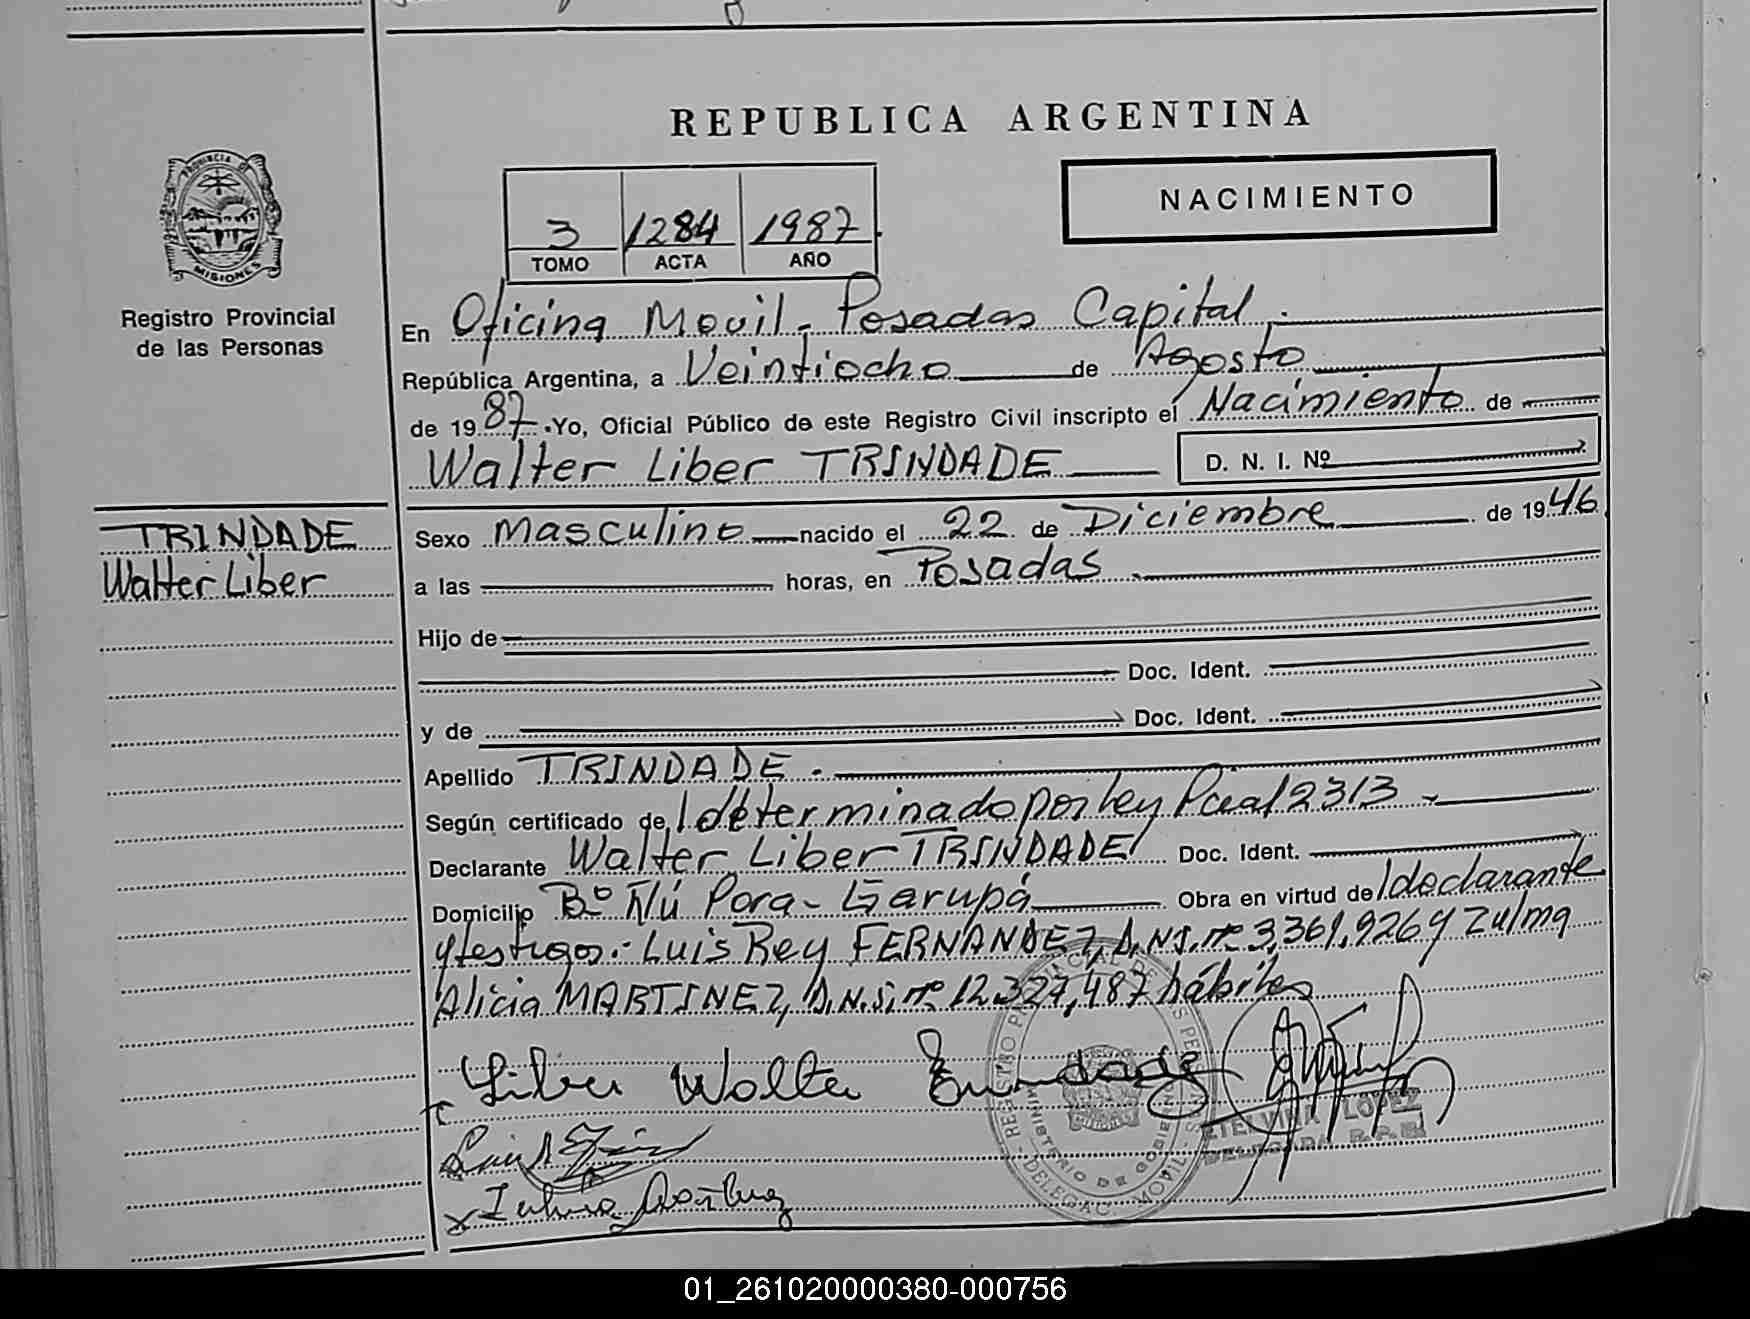 REPUBLICA ARGENTINA
PROVINCIA DE
MISIONES
Registro Provincial
de las Personas
NACIMIENTO
3 1284 1987
TOMO ACTA AÑO
En Oficina Movil - Posadas Capital.-
República Argentina, a Veintiocho de Agosto
de 1987. Yo, Oficial Público de este Registro Civil inscripto el Nacimiento de
Walter Liber TRINDADE D. N. I. Nº
TRINDADE
Walter Liber
Sexo Masculino nacido el 22 de Diciembre de 1946
a las horas, en Posadas.
Hijo de
Doc. Ident.
y de Doc. Ident.
Apellido TRINDADE.
Según certificado de, lo determinado por Ley Pcial 2313.-
Declarante Walter Liber TRINDADE Doc. Ident.
Domicilio Bº Ñú Pora - Garupá Obra en virtud de, l declarante
y testigos: Luis Rey FERNANDEZ, D.N.I. nº 3,361,926 y Zulma
Alicia MARTINEZ, D.N.I. nº 12.327,487 hábiles
Liber Walter Trindade
REGISTRO PROVINCIAL DE LAS PERSONAS
MINISTERIO DE GOBIERNO
DELEGAC. MOVIL
ETELVINA LOPEZ
DELEGADA R.P.P.
01_261020000380-000756